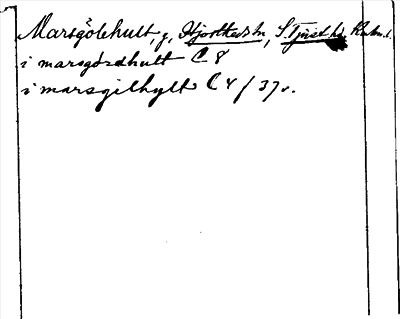 Marsgölehult, g, Hjorteds sn, S. Tjust hd, Kalm. l.
i marsgózdhult C 8
i marsgilhylt C 4 / 37v.